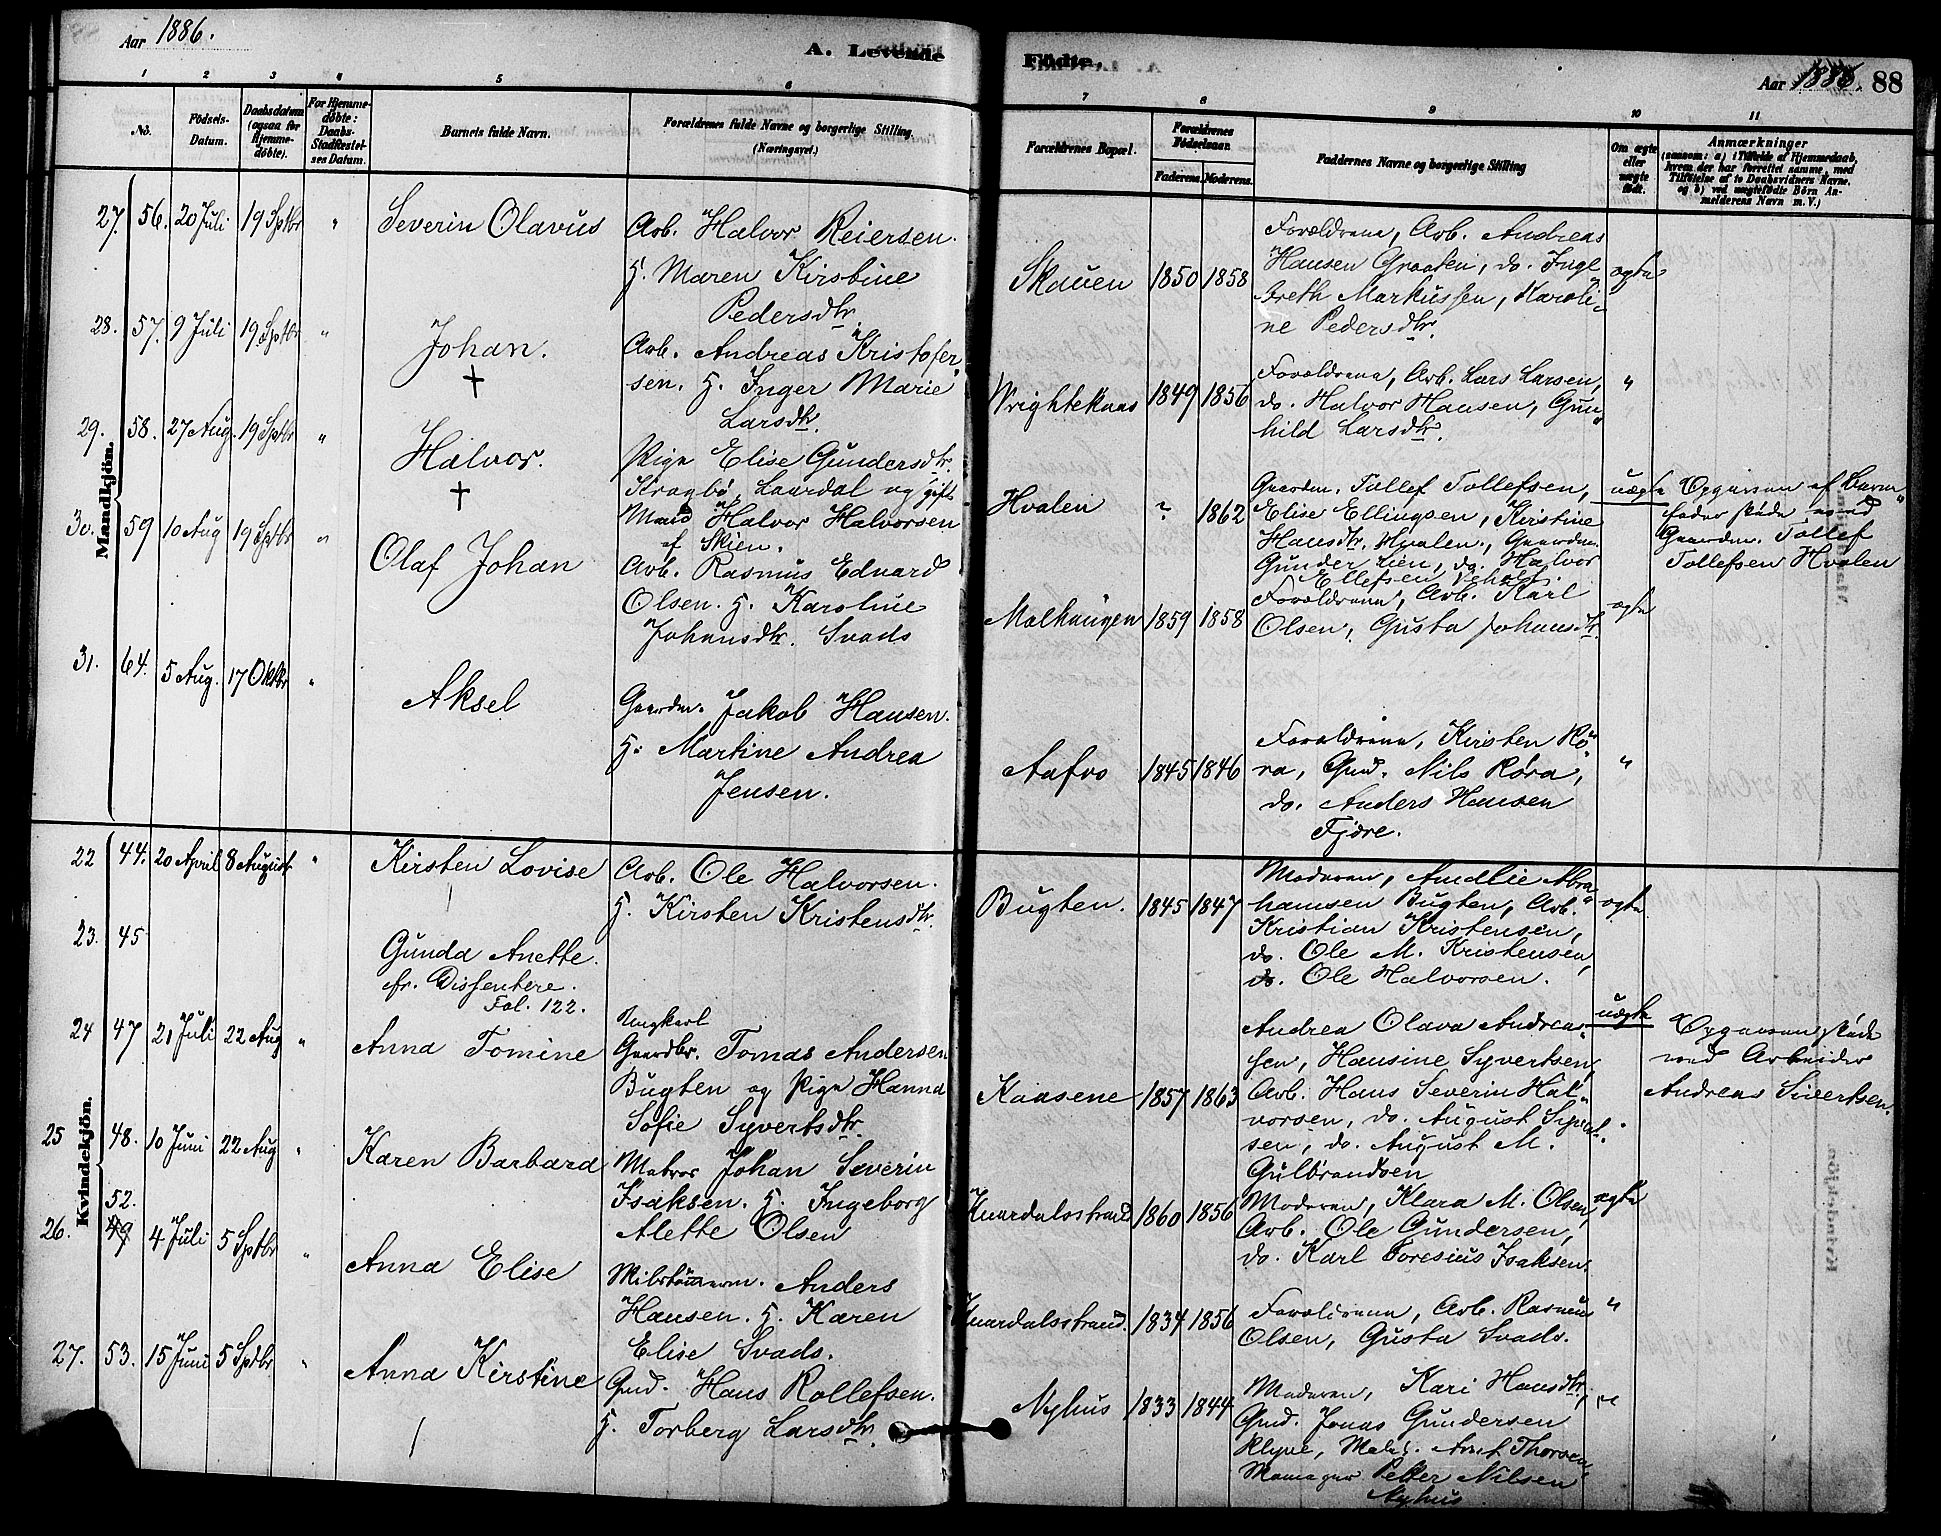 Aar 1886.
A. Levende
1 2 3 4 5 6
No.
Födsels-
Datum.
Daabsdatum
(ogsaa for
Hjemme-
döbte).
For Hjemme-
döbte:
Daabs-
Stadfæstel-
ses Datum.
Barnets fulde Navn.
Forældrenes fulde Navne og borgerlige Stilling.
(Næringsvei.)
Mandkjön.
27. 56. 20 Juli 19 Sptbr " Severin Olavus
Arb. Halvor Reiersen.
H. Maren Kirstine
Pedersdtr.
28. 57. 9 Juli 19 Sptbr "
Johan.
+
Arb. Andreas Kristofer-
sen. H. Inger Marie
Larsdtr.
29. 58. 27 Aug. 19 Sptbr "
Halvor.
+
Pige Elise Gundersdtr.
Kragbø, Laardal og gift
Mand Halvor Halvorsen
af Skien.
30. 59 10 Aug 19 Sptbr "
Olaf Johan
Arb. Rasmus Edvard
Olsen. H. Karoline
Johansdtr. Svads
31. 64. 5 Aug. 17 Oktbr "
Aksel
Gaardm. Jakob Hansen.
H. Martine Andrea
Jensen.
Kvindekjön.
22 44. 20 April 8 August "
Kirsten Lovise
Arb. Ole Halvorsen.
H. Kirsten Kristensdtr.
23. 45
Gunda Anette.
fr. Dissentere.
Fol. 122.
24 47 21 Juli 22 Aug "
Anna Tomine
Ungkarl
Gaardbr. Tomas Andersen
Bugten og Pige Hanna
Sofie Syvertsdtr.
25 48. 10 Juni 22 Aug "
Karen Barbara
Matros Johan Severin
Isaksen. H. Ingeborg
Alette Olsen
52.
26. 49 4 Juli 5 Sptbr "
Anna Elise
Skibstømerm. Anders
Hansen. H. Karen
Elise Svads.
27. 53. 15 Juni 5 Sptbr "
Anna Kirstine
Gmd. Hans Rollefsen.
H. Torberg Larsdtr.
Födte.
Aar 1886. 88
7 8 9 10 11
Forældrenes Bopæl.
Forældrenes
Födselsaar.
Faderens. Moderens.
Faddernes Navne og borgerlige Stilling
Om ægte
eller
uægte
födt.
Anmærkninger
(saasom: a) i Tilfælde af Hjemmedaab,
hvem der har forrettet samme, med
Tilföielse af to Daabsvidners Navne,
og b) ved uægtefödte Börn An-
melderens Navn m. V.)
Skauen 1850 1858
Forældrene, Arb. Andreas
Hansen Graaten, do. Inge
breth Markussen, Karoli-
ne Pedersdtr.
ægte
Wrighteknas 1849 1856
Forældrene, Arb. Lars Larsen,
do. Halvor Hansen, Gun-
hild Larsdtr.
"
Hvalen ? 1862
Gaardm. Tollef Tollefsen,
Elise Ellingsen, Kirstine
Hansdtr. Hvalen, Gaardm.
Gunder Lien, do. Halvor
Ellefsen
uægte
Opgaven af Barne-
fader skede ved
Gaardm. Tollef
Tollefsen Hvalen
Malhaugen 1859 1858
Forældrene, Arb. Karl
Olsen, Gusta Johansdtr.
ægte
Aafos 1845 1846
Forældrene, Kirsten Rø-
ra, Gmd. Nils Røra,
do. Anders Hansen
Fjære.
"
Bugten. 1845 1847
Moderen, Amalie Abra-
hamsen Bugten, Arb.
Kristian Kristensen,
do. Ole M. Kristensen,
do. Ole Halvorsen.
ægte
Kaasene 1857 1863
Andrea Olava Andrea-
sen, Hansine Syvertsen,
Arb. Hans Severin Hal-
vorsen, do. August Syvert-
sen, do. August M.
Gulbrandsen
uægte
Opgaven skede
ved Arbeider
Andreas Sivertsen.
Knardalsstrand 1860 1856
Moderen, Klara M. Olsen,
Arb. Ole Gundersen,
do. Karl Toresius Isaksen.
ægte
Knardalsstrand. 1834 1856
Forældrene, Arb. Rasmus
Olsen, Gusta Svads.
"
Nyhus 1833 1844
Moderen, Kari Hansdtr.,
Gmd. Jonas Gundersen
Klyve, Thorsen,
Petter Nilsen
Nyhus
"